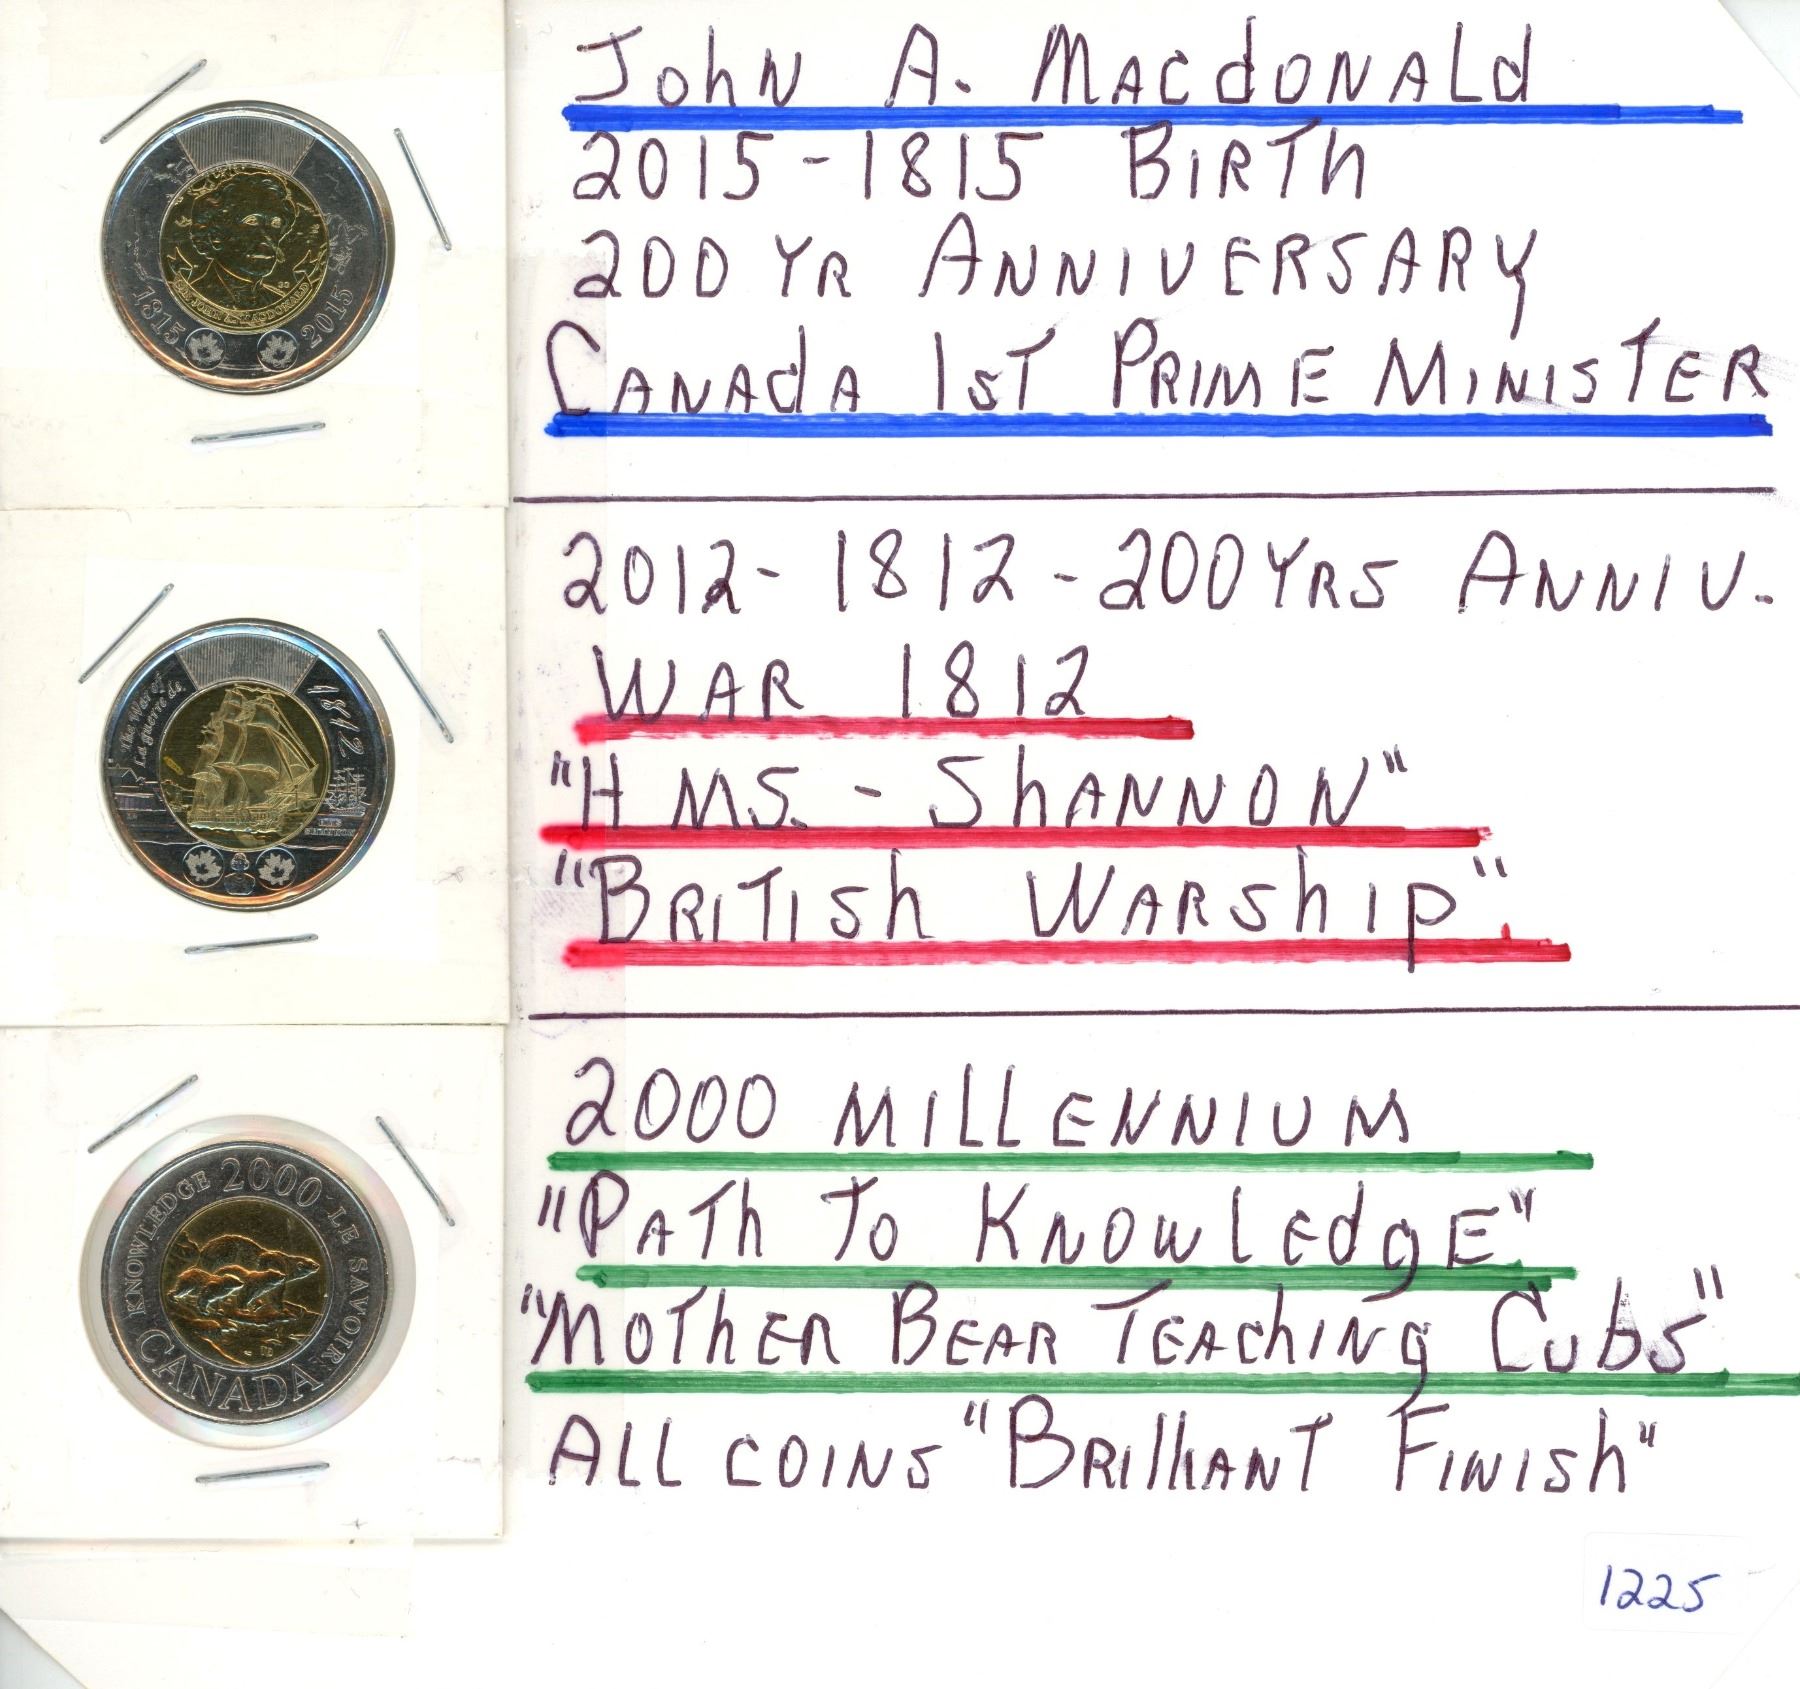 John A. Macdonald
2015-1815 Birth
200 Yr Anniversary
Canada 1st Prime Minister
1815 2015
SIR JOHN A. MACDONALD
2012-1812-200 Yrs Anniv.
War 1812
"HMS. - Shannon"
"British Warship".
The War of 1812
La guerre de
HMS
SHANNON
2000 Millennium
"Path To Knowledge"
"Mother Bear Teaching Cubs"
All coins "Brilliant Finish"
KNOWLEDGE 2000 LE SAVOIR
CANADA
1225